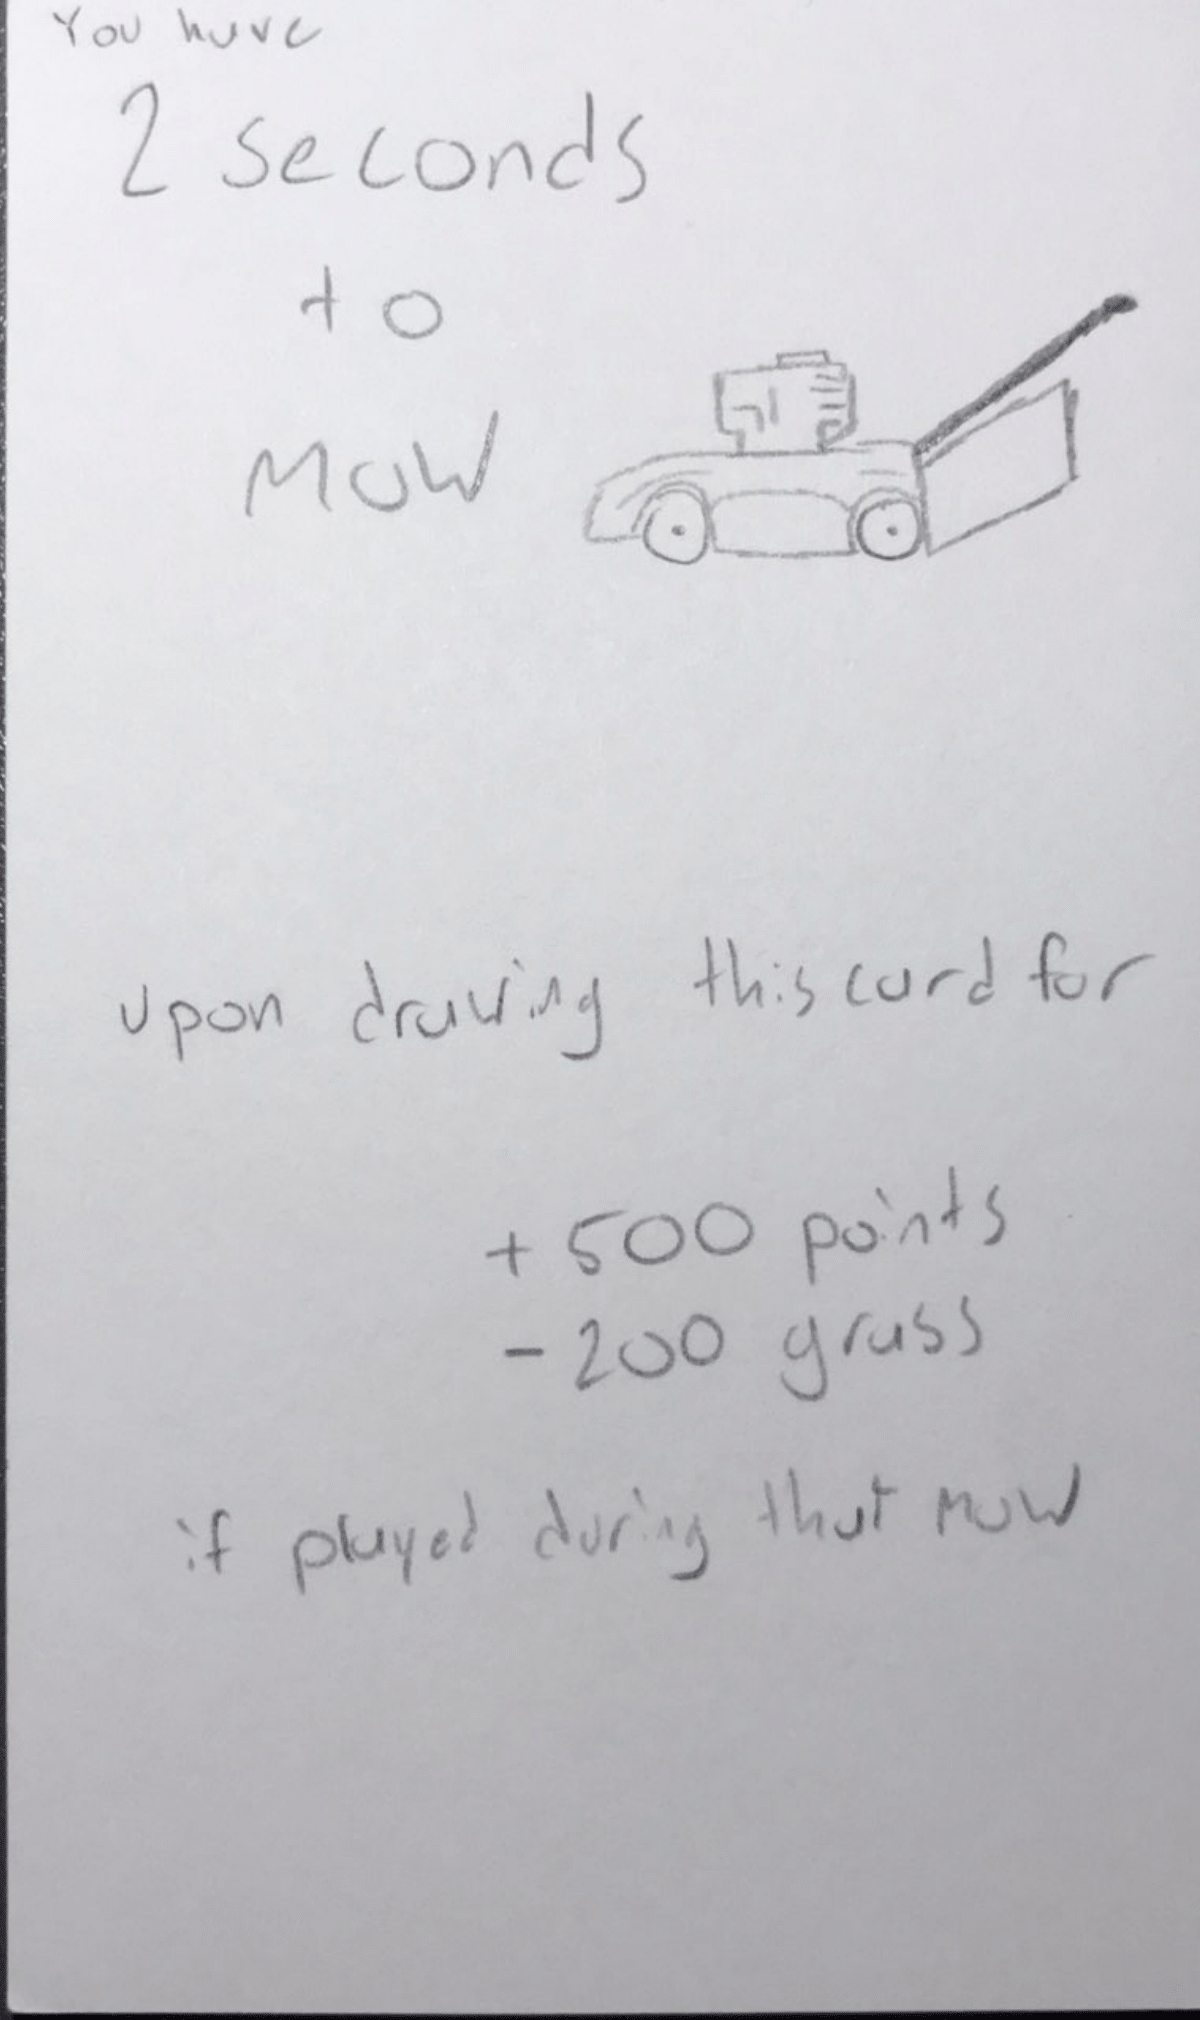 You have
2 seconds
to
MOW
upon drawing this card for
+ 500 points
- 200 grass
if played during that mow